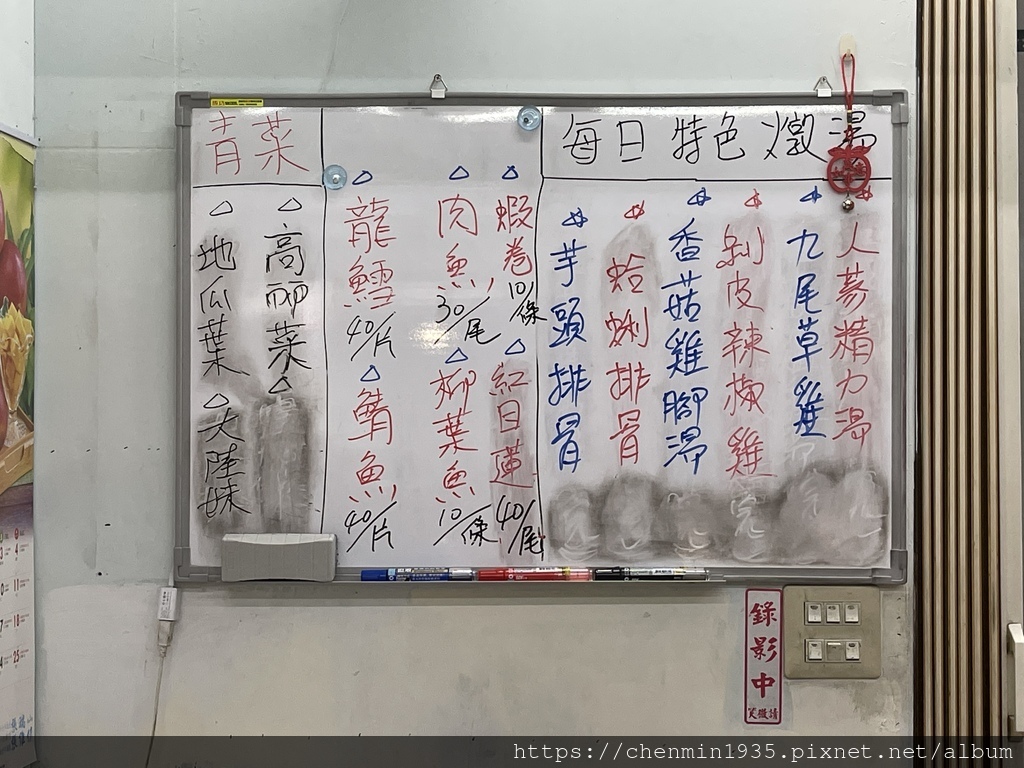 青菜
高麗菜
地瓜葉
大陸妹
蝦卷
10/條
紅目蓮
40/尾
肉魚
30/尾
柳葉魚
10/條
龍鱈
40/片
鯖魚
40/片
每日特色燉湯
人蔘精力湯
九尾草雞
剝皮辣椒雞
香菇雞腳湯
蛤蜊排骨
芋頭排骨
錄影中
請微笑
https://chenmin1935.pixnet.net/album